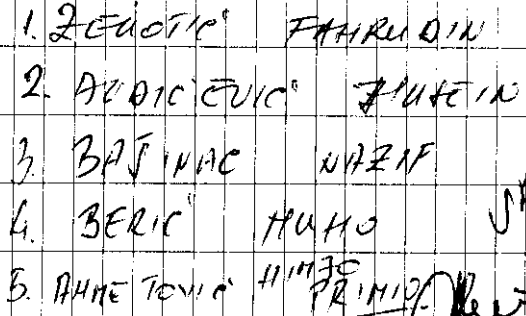 1. ZEKOTIĆ FAHRUDIN
2. AVDIĆEVIĆ HUSEIN
3. BAŠINAC NAZIF
4. BERIĆ HUHO
5. AHMETOVIĆ HIMZO
PRIMIO